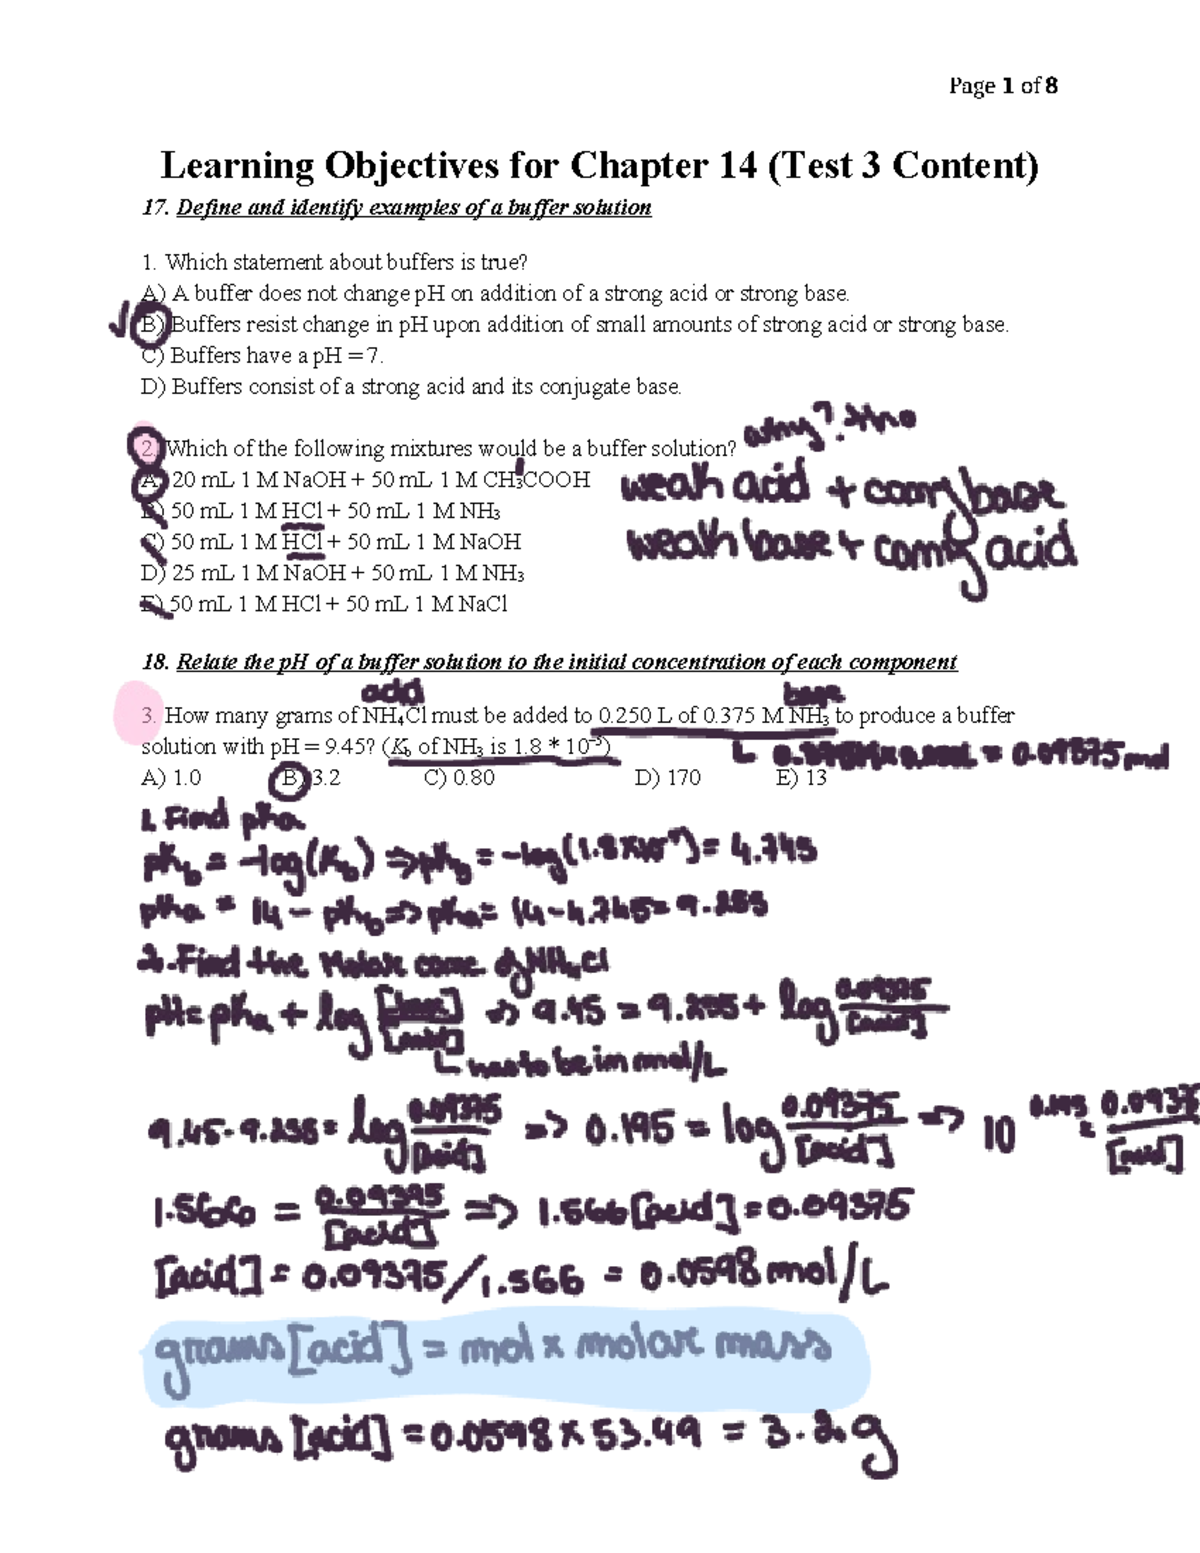 Page 1 of 8
Learning Objectives for Chapter 14 (Test 3 Content)
17. Define and identify examples of a buffer solution
1. Which statement about buffers is true?
A) A buffer does not change pH on addition of a strong acid or strong base.
√ B) Buffers resist change in pH upon addition of small amounts of strong acid or strong base.
C) Buffers have a pH = 7.
D) Buffers consist of a strong acid and its conjugate base.
2. Which of the following mixtures would be a buffer solution? why?
A) 20 mL 1 M NaOH + 50 mL 1 M CH₃COOH
weak acid + conj base
B) 50 mL 1 M HCl + 50 mL 1 M NH₃
C) 50 mL 1 M HCl + 50 mL 1 M NaOH
weak base + conj acid
D) 25 mL 1 M NaOH + 50 mL 1 M NH₃
E) 50 mL 1 M HCl + 50 mL 1 M NaCl
18. Relate the pH of a buffer solution to the initial concentration of each component
acid base
3. How many grams of NH₄Cl must be added to 0.250 L of 0.375 M NH₃ to produce a buffer
solution with pH = 9.45? (Kb of NH₃ is 1.8 * 10⁻⁵)
= 0.09375 mol
A) 1.0 B) 3.2 C) 0.80 D) 170 E) 13
1. Find pka
pKb = -log(Kb) => pKb = -log(1.8x10) = 4.745
pka = 14 - pkb => pka = 14 - 4.745 = 9.255
2. Find the Molar conc of NH₄Cl
pH = pka + log [base]/[acid] => 9.45 = 9.255 + log 0.09375/[acid]
has to be in mol/L
9.45 - 9.255 = log 0.09375/[acid] => 0.195 = log 0.09375/[acid] => 10^0.195 = 0.0937/[acid]
1.566 = 0.09375/[acid] => 1.566[acid] = 0.09375
[acid] = 0.09375/1.566 = 0.0598 mol/L
grams[acid] = mol x molar mass
grams [acid] = 0.0598 x 53.49 = 3.2g